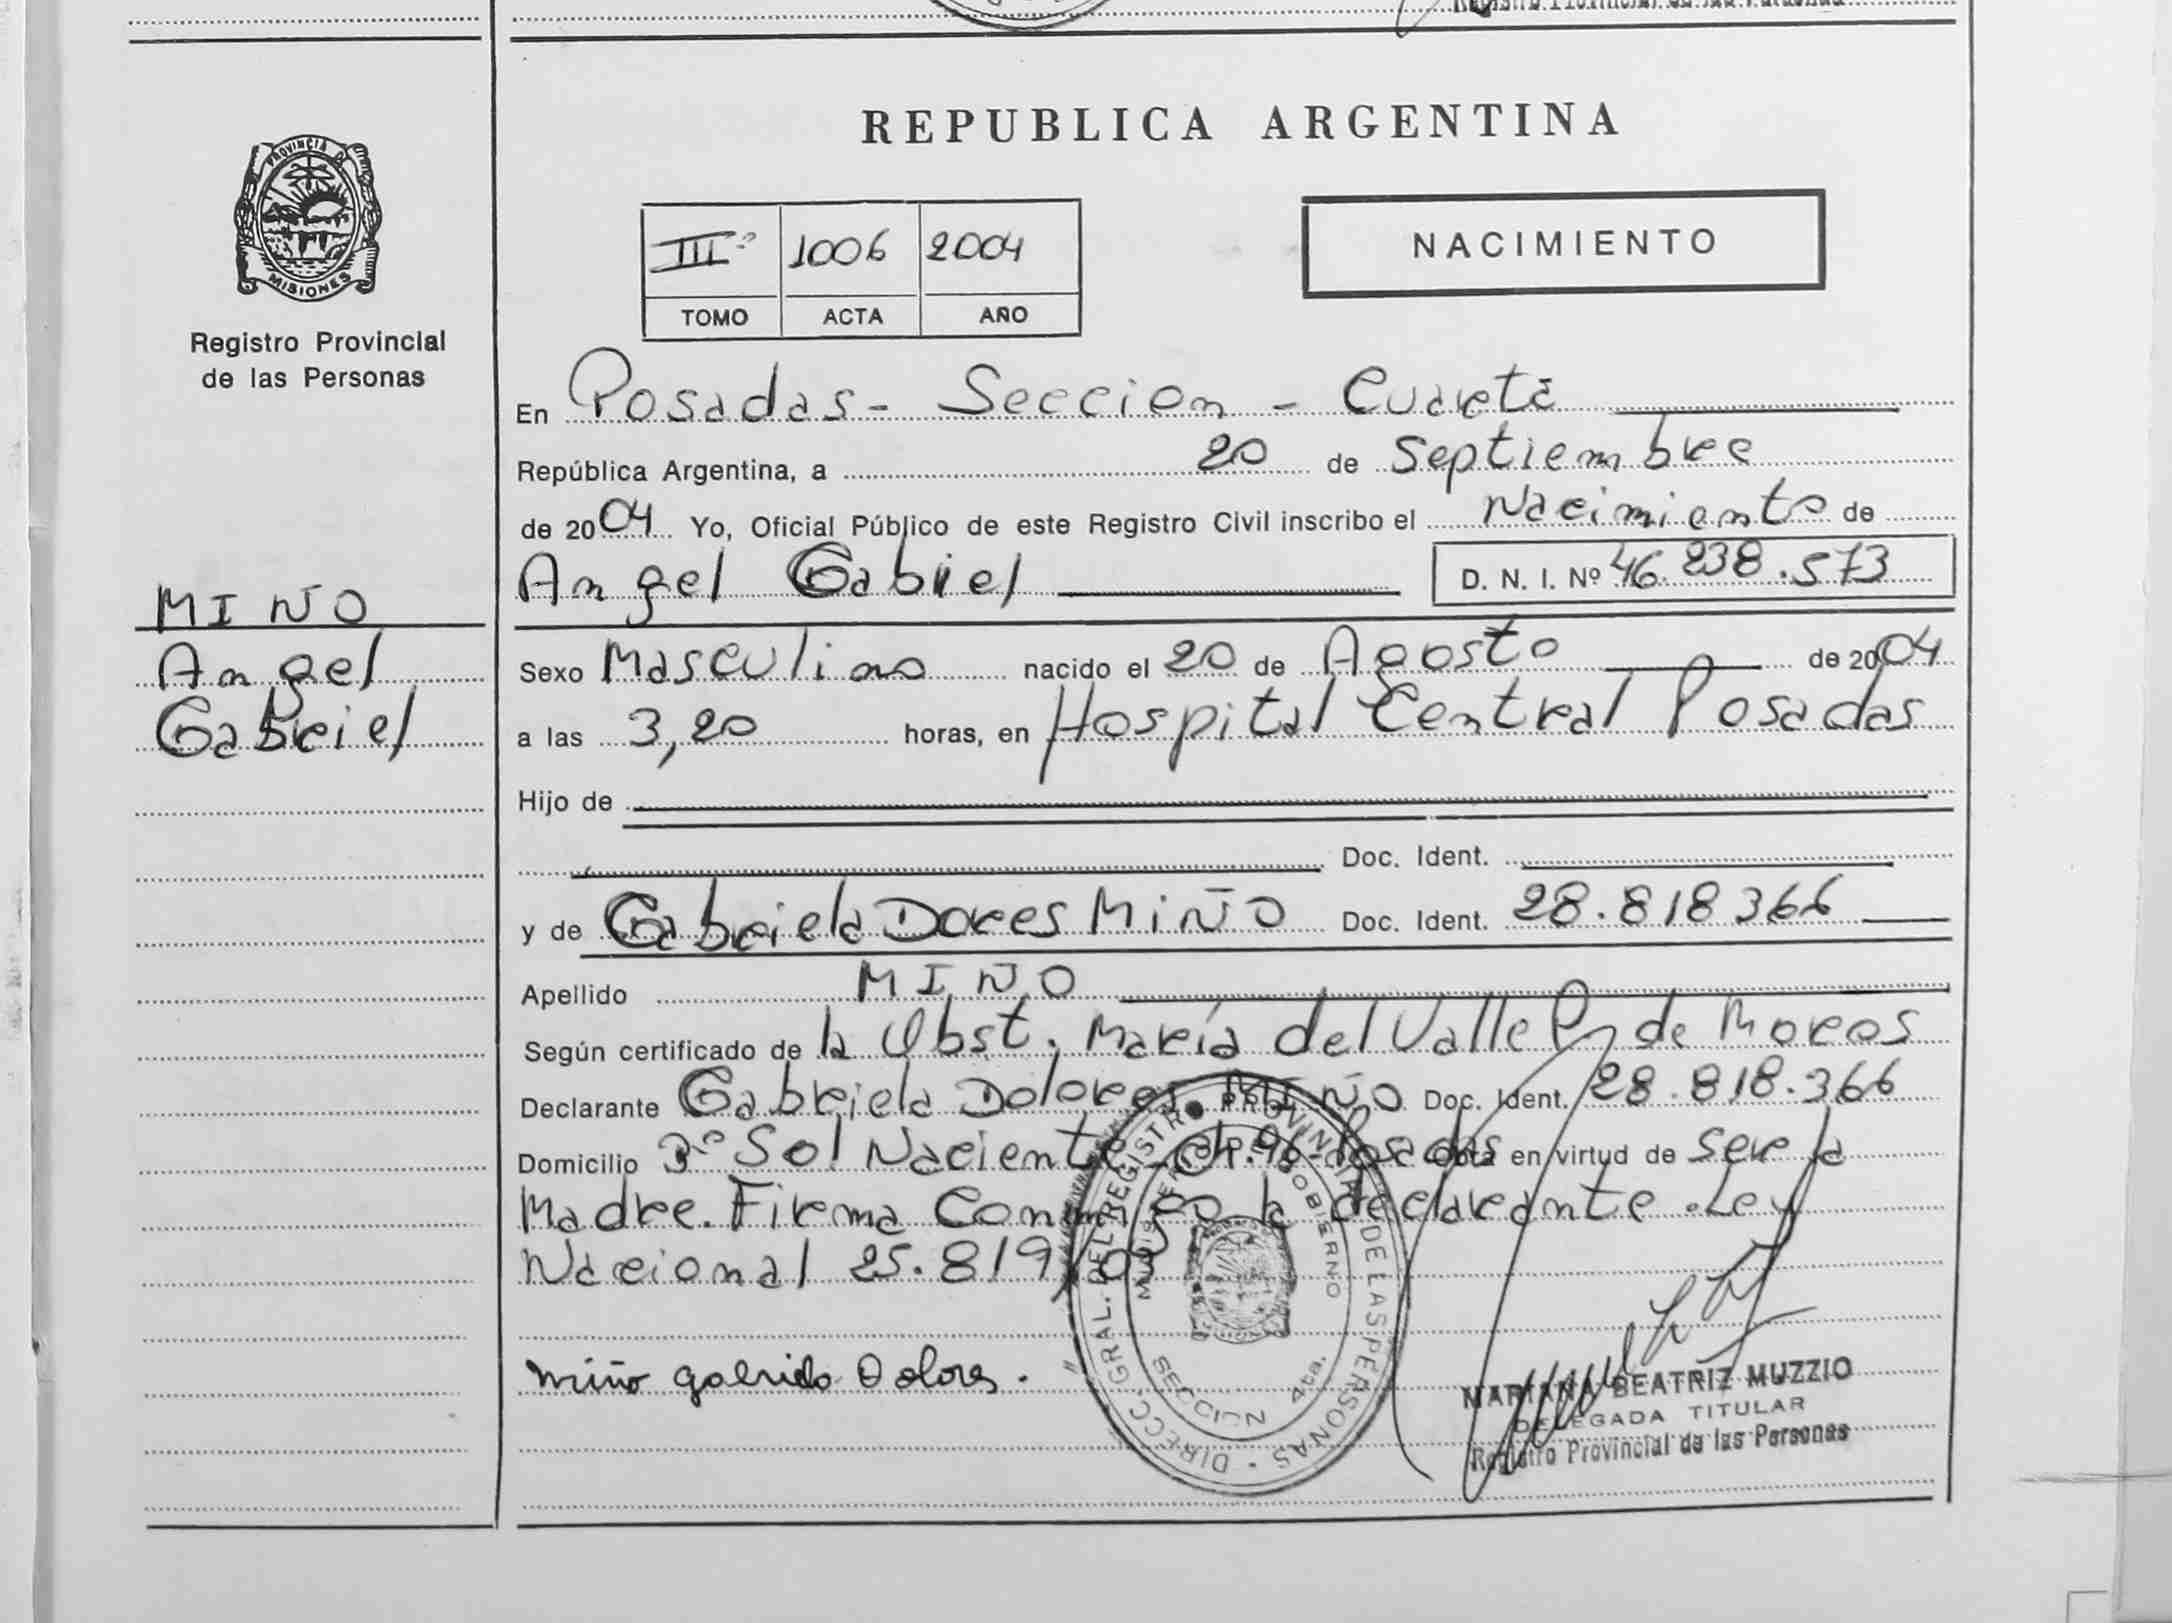 Registro Provincial de las Personas
REPUBLICA ARGENTINA
PROVINCIA DE
MISIONES
Registro Provincial
de las Personas
IIIº 1006 2004
TOMO ACTA AÑO
NACIMIENTO
En Posadas - Seccion - Cuarta
República Argentina, a 20 de Septiembre
de 2004 Yo, Oficial Público de este Registro Civil inscribo el Nacimiento de
Angel Gabriel D. N. I. Nº 46.238.573
MIÑO
Angel
Gabriel
Sexo Masculino nacido el 20 de Agosto de 2004
a las 3,20 horas, en Hospital Central Posadas
Hijo de
Doc. Ident.
y de Gabriela Dores MIÑO Doc. Ident. 28.818 366
Apellido MIÑO
Según certificado de la Obst. María del Valle P. de Moros
Declarante Gabriela Dolores MIÑO Doc. Ident. 28.818.366
Domicilio Sol Naciente ch. 96 - Posadas en virtud de ser la
Madre. Firma Conmigo la declarante. Ley
Nacional 25.819/03
Miño gabriela Dolores.
DIRECC. GRAL. DEL REGISTRO PROVINCIAL DE LAS PERSONAS
GOBIERNO
SECCION 4ta.
MARIANA BEATRIZ MUZZIO
DELEGADA TITULAR
Registro Provincial de las Personas